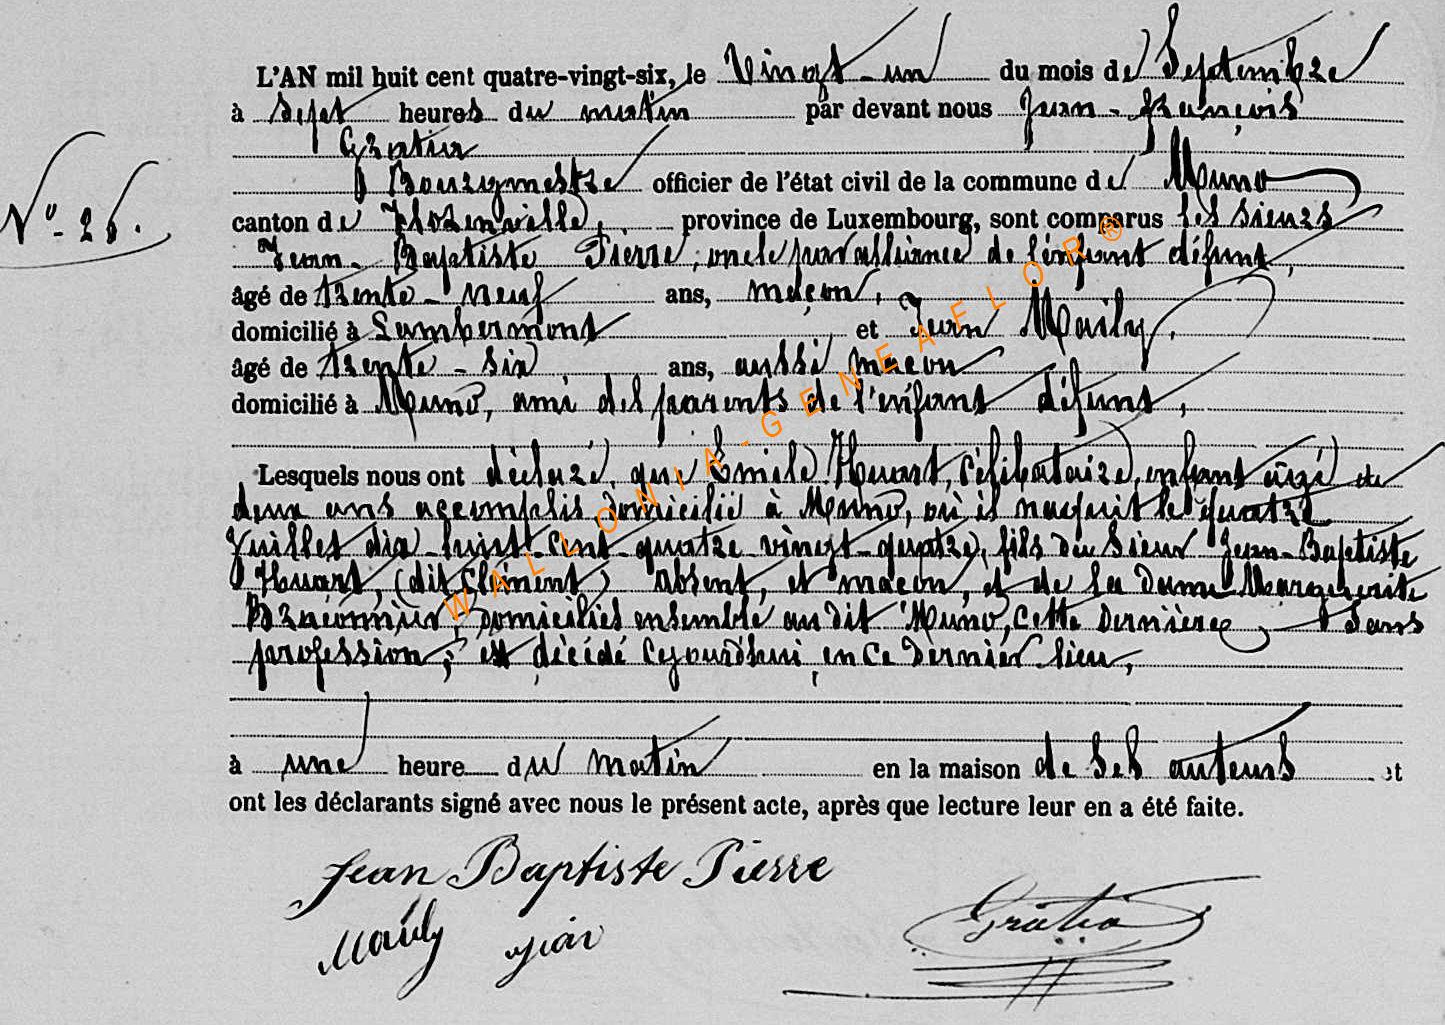 L'AN mil huit cent quatre-vingt-six, le Vingt-un du mois de Septembre
à sept heures du matin par devant nous Jean-François
Gratia
Bourgmestre officier de l'état civil de la commune de Muno
N° 26.
canton de Florenville, province de Luxembourg, sont comparus les sieurs
Jean-Baptiste Pierre, oncle par alliance de l'enfant défunt,
âgé de trente-neuf ans, maçon,
domicilié à Lambermont et Jean Maily,
âgé de trente-six ans, aussi maçon
domicilié à Muno, ami des parents de l'enfant défunt,
Lesquels nous ont déclaré, que Émile Huart, célibataire, enfant âgé de
deux ans accomplis domicilié à Muno, où il naquit le quatre
Juillet dix-huit-cent-quatre-vingt-quatre, fils du Sieur Jean-Baptiste
Huart, (dit Clément) absent, et maçon, et de la dame Marguerite
Braconnier, domiciliés ensemble au dit Muno, cette dernière, Sans
profession, est décédé cejourd'hui en ce dernier lieu,
à une heure du matin en la maison de ses auteurs et
ont les déclarants signé avec nous le présent acte, après que lecture leur en a été faite.
Jean Baptiste Pierre
Gratia
WALLONIA-GENEAFLOR®